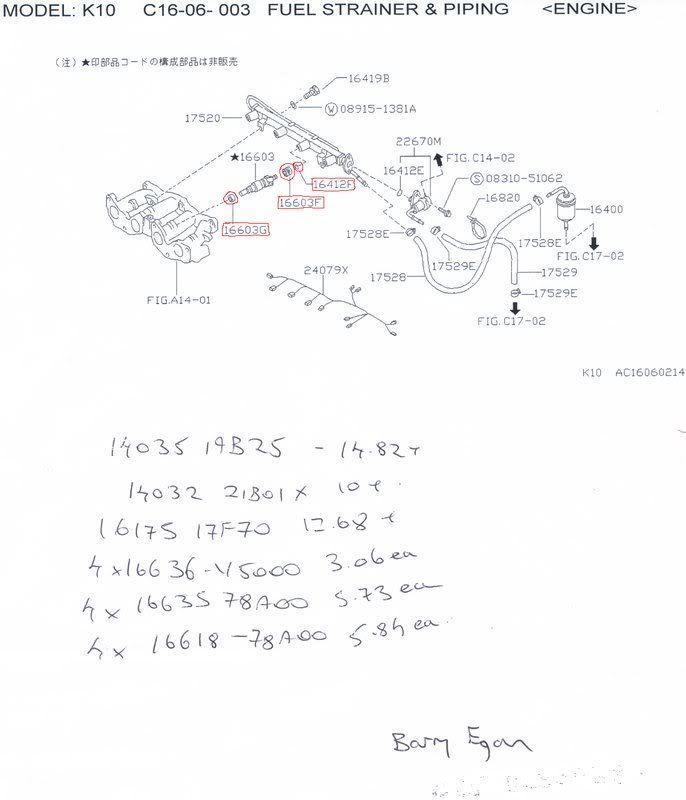 MODEL: K10 C16-06- 003 FUEL STRAINER & PIPING <ENGINE>
(注) ★印部品コードの構成部品は非販売
16419B
W 08915-1381A
17520
22670M
FIG.C14-02
★16603
16412E
S 08310-51062
16412F
16603F
16820
16400
16603G
17528E
17528E
17529E
FIG.C17-02
24079X
17528
17529
17529E
FIG.A14-01
FIG.C17-02
K10 AC16060214
14035 19B25 - 14.82+
14032 21B01 x 10 +.
16175 17F70 12.68 +
4 x16636-V5000 3.06 ea
4 x 16635 78A00 5.73 ea
4 x 16618-78A00 5.84 ea.
Barry Egan